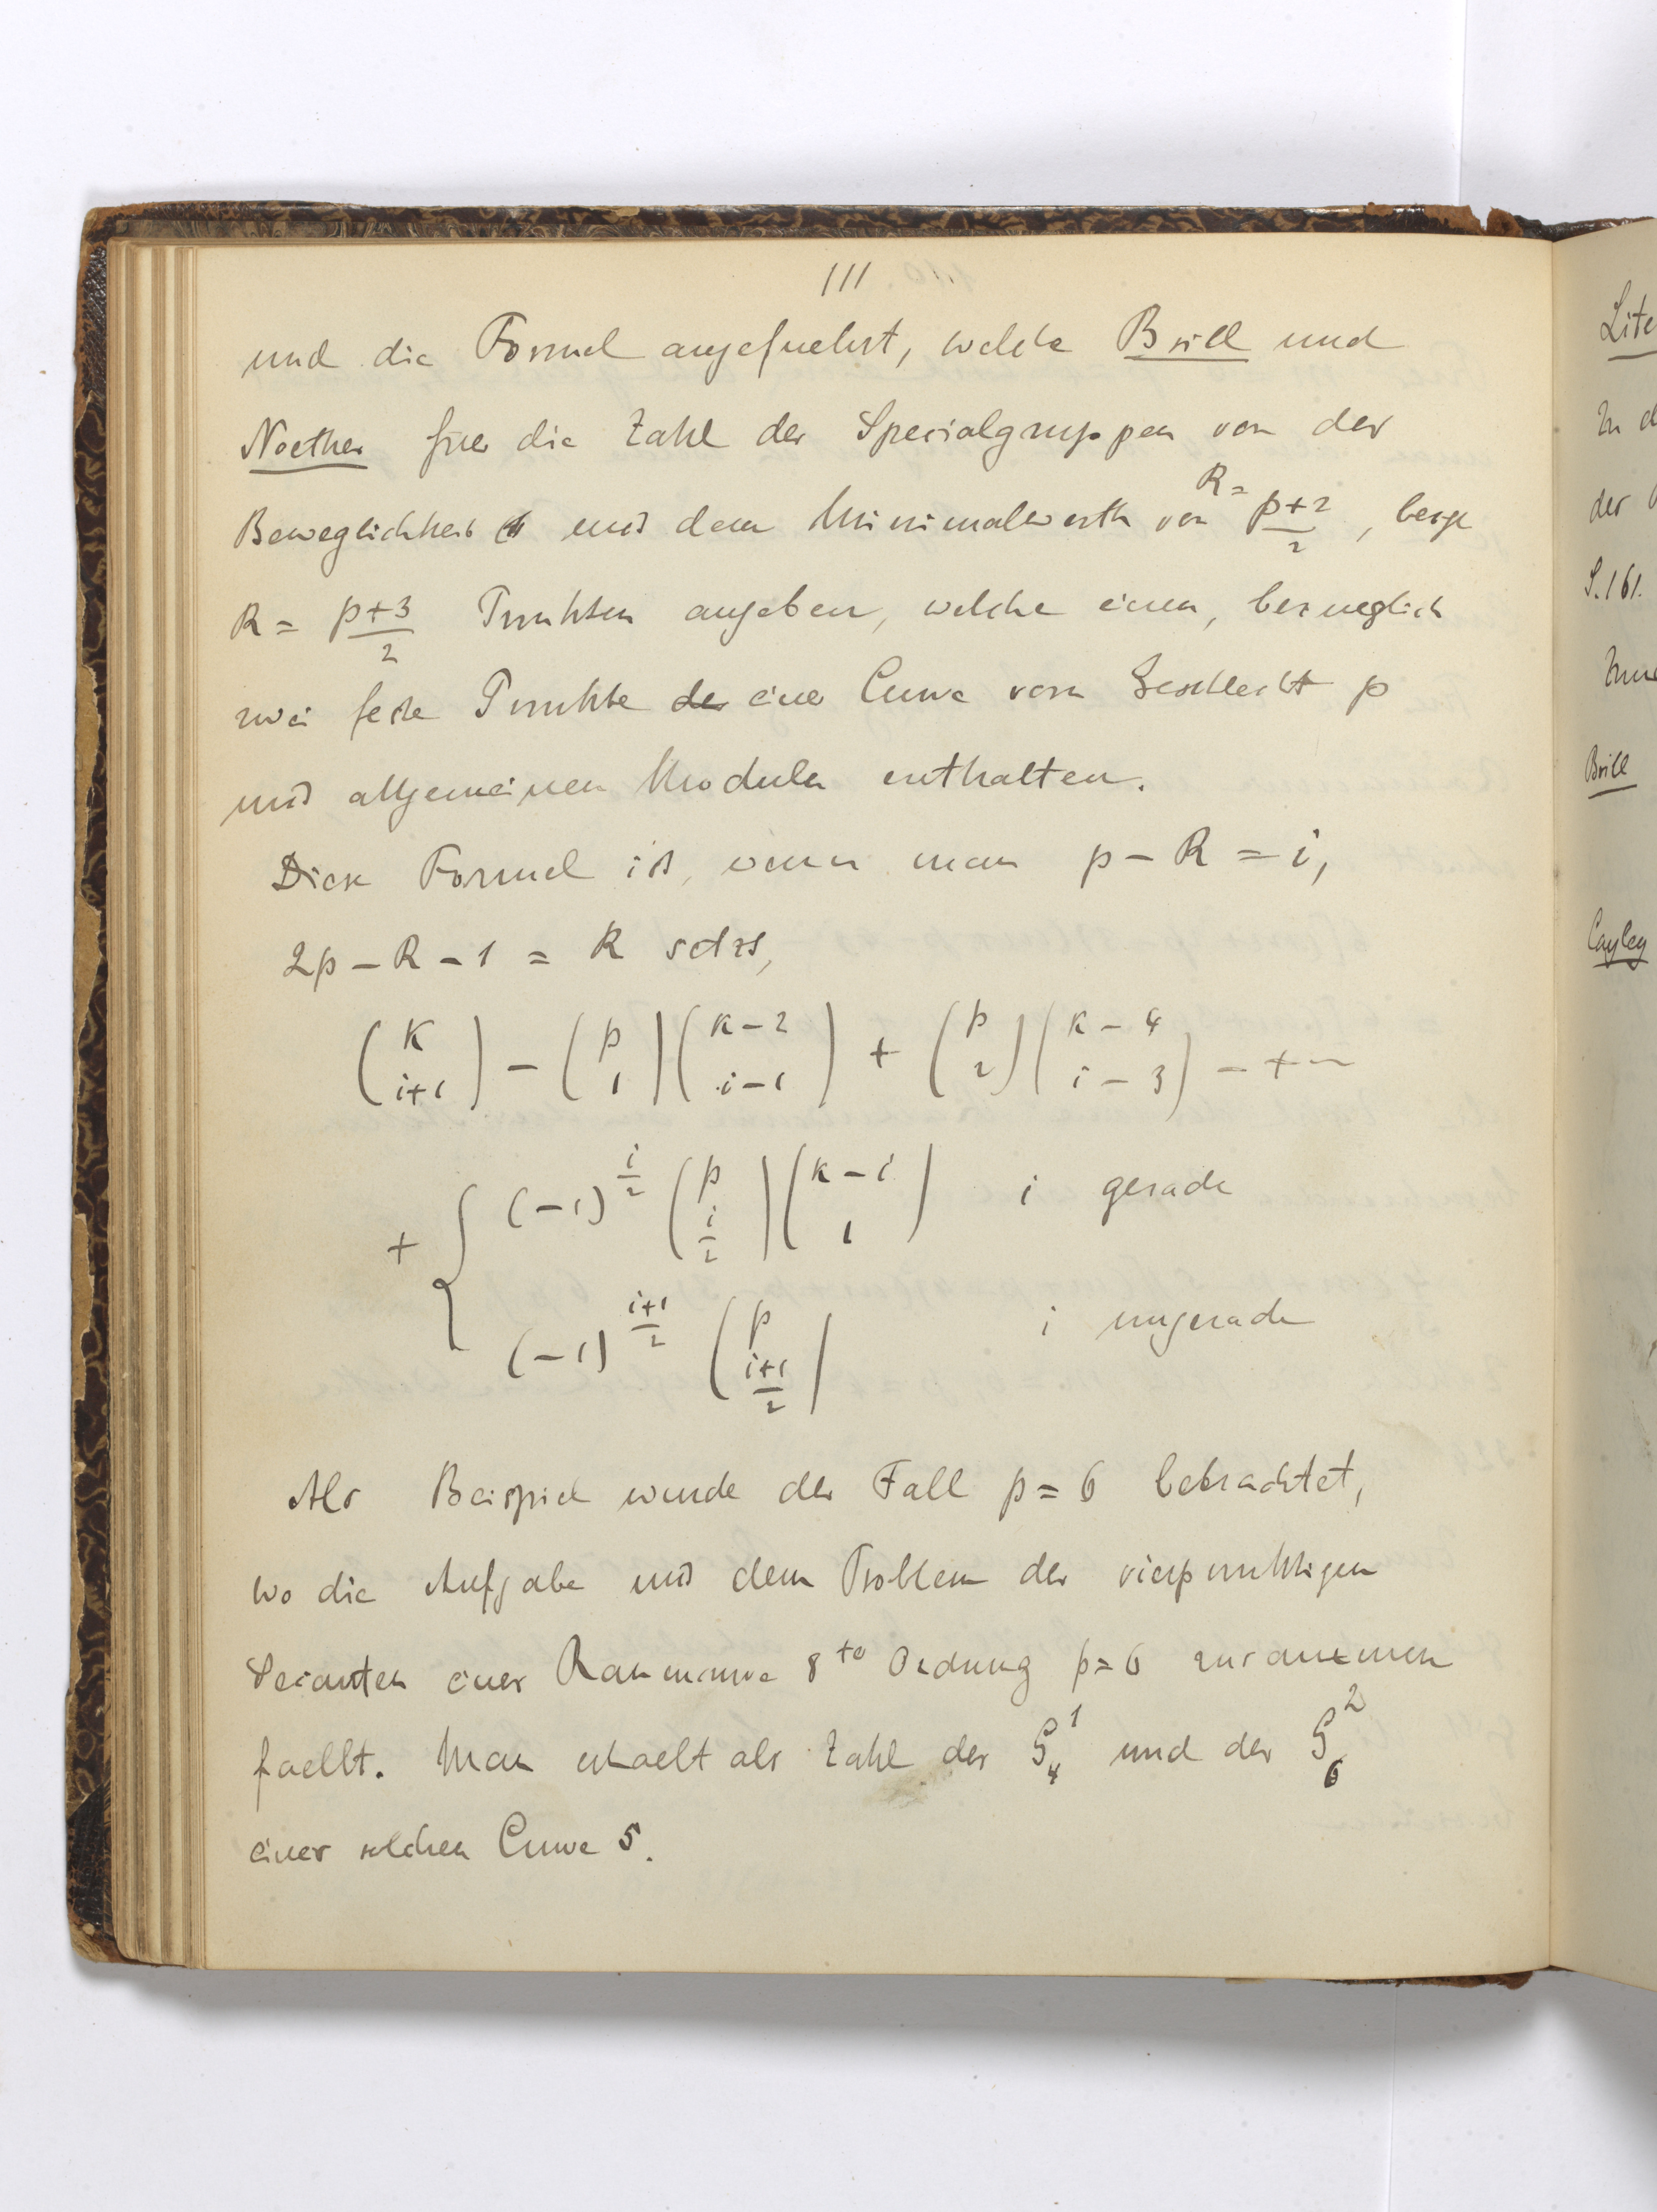 111
und die Formel angefuehrt, welche Brill und
Noether fuer die Zahl der Specialgruppen von der
Beweglichkeit 1 mit dem Minimalwerth von R = p+2/2, bezw
R = p+3/2 Punkten angeben, welche einen, bezueglich
zwei feste Punkte einer Curve vom Geschlecht p
mit allgemeinen Moduln enthalten.
Diese Formel ist, wenn man p – R = i,
2p – R – 1 = k setzt,
(k i+1) – (p 1)(k–2 i–1) + (p 2)(k–4 i–3) – + –
+ { (–1)^{i/2} (p i/2)(k–i 1) i gerade
(–1)^{i+1/2} (p i+1/2) i ungerade
Als Beispiel wurde der Fall p = 6 betrachtet,
wo die Aufgabe mit dem Problem der vierpunktigen
Secanten einer Raumcurve 8ter Ordnung p=6 zusammen
faellt. Man erhaelt als Zahl der G_4^1 und der G_6^2
einer solchen Curve 5.
Lite
In d
der
S.161.
Brill
Cayley